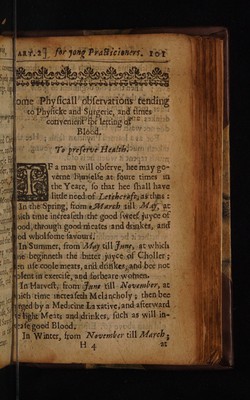 ART.2] for yong Practicioners. 101
ome Physicall observations tending
to Physicke and Surgerie, and times
convenient for letting of
Blood.
To preserve Health.
IF a man will observe, hee may go-
verne himselfe at foure times in
the Yeare, so that hee shall have
little need of Leechcraft, as thus:
In the Spring, from March till May, at
hich time increaseth the good sweet juyce of
ood, through good meates and drinkes, and
od wholsome savours.
In Summer, from May till June, at which
me beginneth the bitter juyce of Choller;
en use coole meats, and drinkes, and bee not
olent in exercise, and forbeare women.
In Harvest, from June till November, at
hich time increaseth Melancholy; then bee
rged by a Medicine Laxative, and afterward
e light Meats and drinkes, such as will in-
crease good Blood.
In Winter, from November till March;
H 4 at